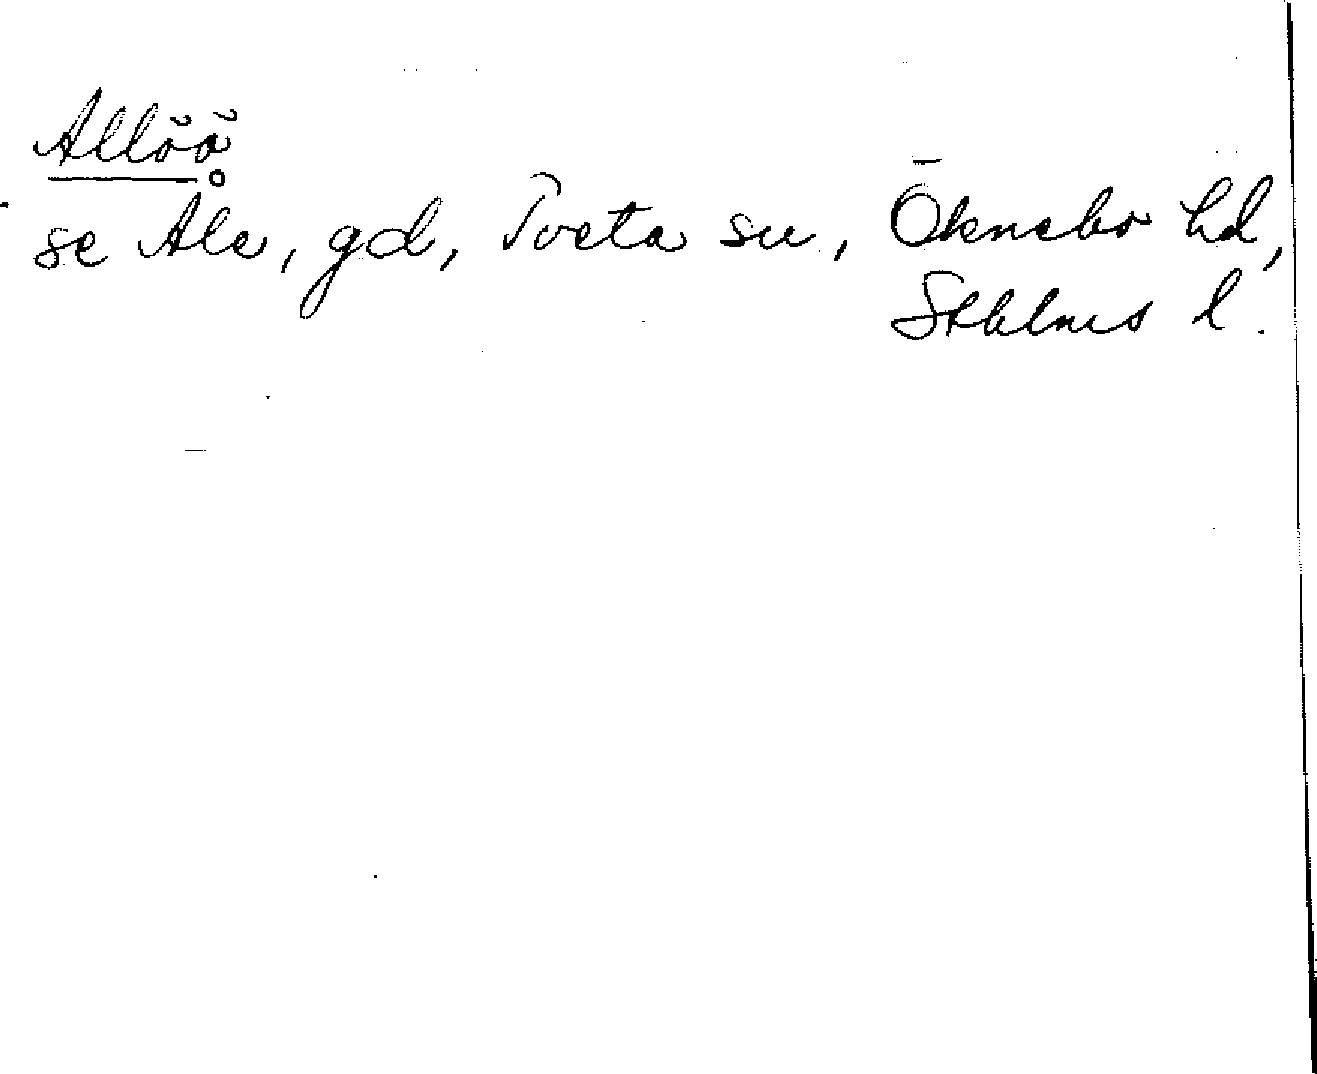 Allöö
se Åla, gd, Tveta sn, Öknebo hd,
Sthlms l.